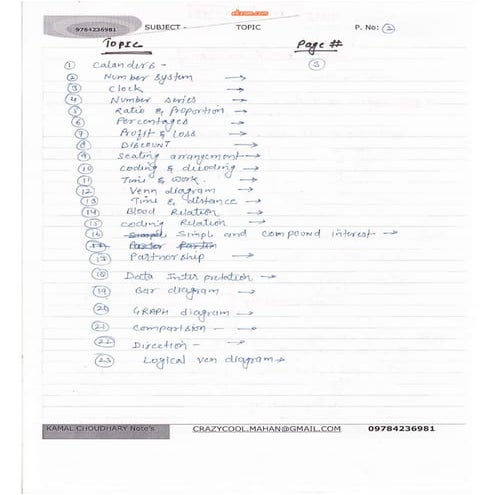 9784236981 SUBJECT - TOPIC P. No: 2
TOPIC Page #
1 Calanders - 3
2 Number system →
3 Clock →
4 Number series →
5 Ratio & Proportion →
6 Percentages →
7 Profit & Loss →
8 DISCOUNT →
9 Seating arrangement →
10 Coding & decoding →
11 Time & Work. →
12 Venn diagram →
13 Time & distance →
14 Blood Relation →
15 Coding Relation →
16 Simpl and compound interest →
17 Partnership →
18 Data Inter pretation →
19 Bar diagram →
20 GRAPH diagram →
21 Comparision - →
22 Direction - →
23 Logical ven diagram →
KAMAL CHOUDHARY Note's CRAZYCOOL.MAHAN@GMAIL.COM 09784236981